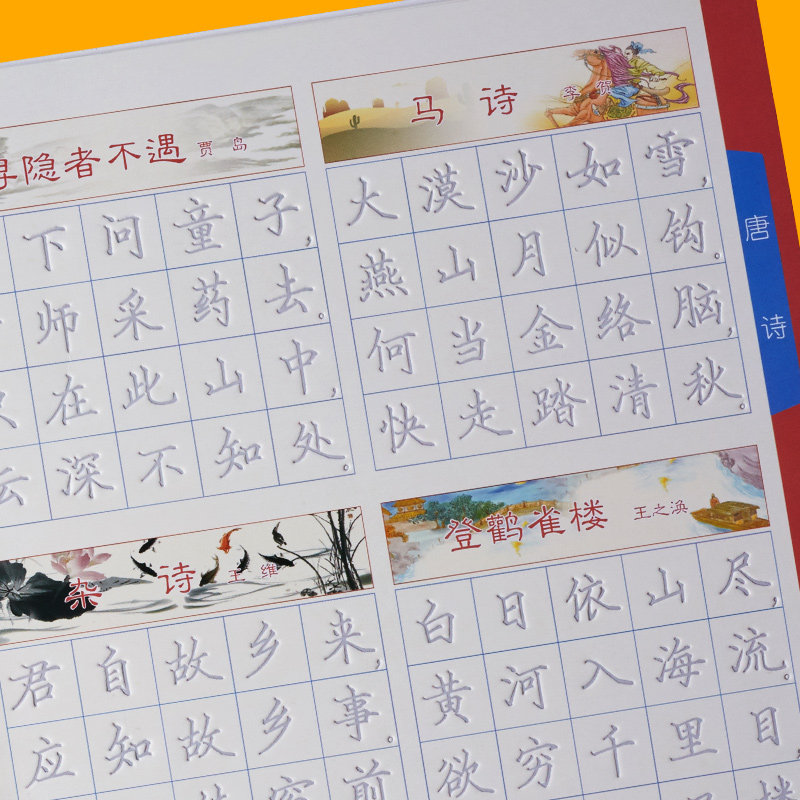 寻隐者不遇 贾岛
下问童子，
师采药去。
只在此山中，
云深不知处。
马诗 李贺
大漠沙如雪，
燕山月似钩。
何当金络脑，
快走踏清秋。
杂诗 王维
君自故乡来，
应知故乡事。
前
登鹳雀楼 王之涣
白日依山尽，
黄河入海流。
欲穷千里目
楼
唐诗